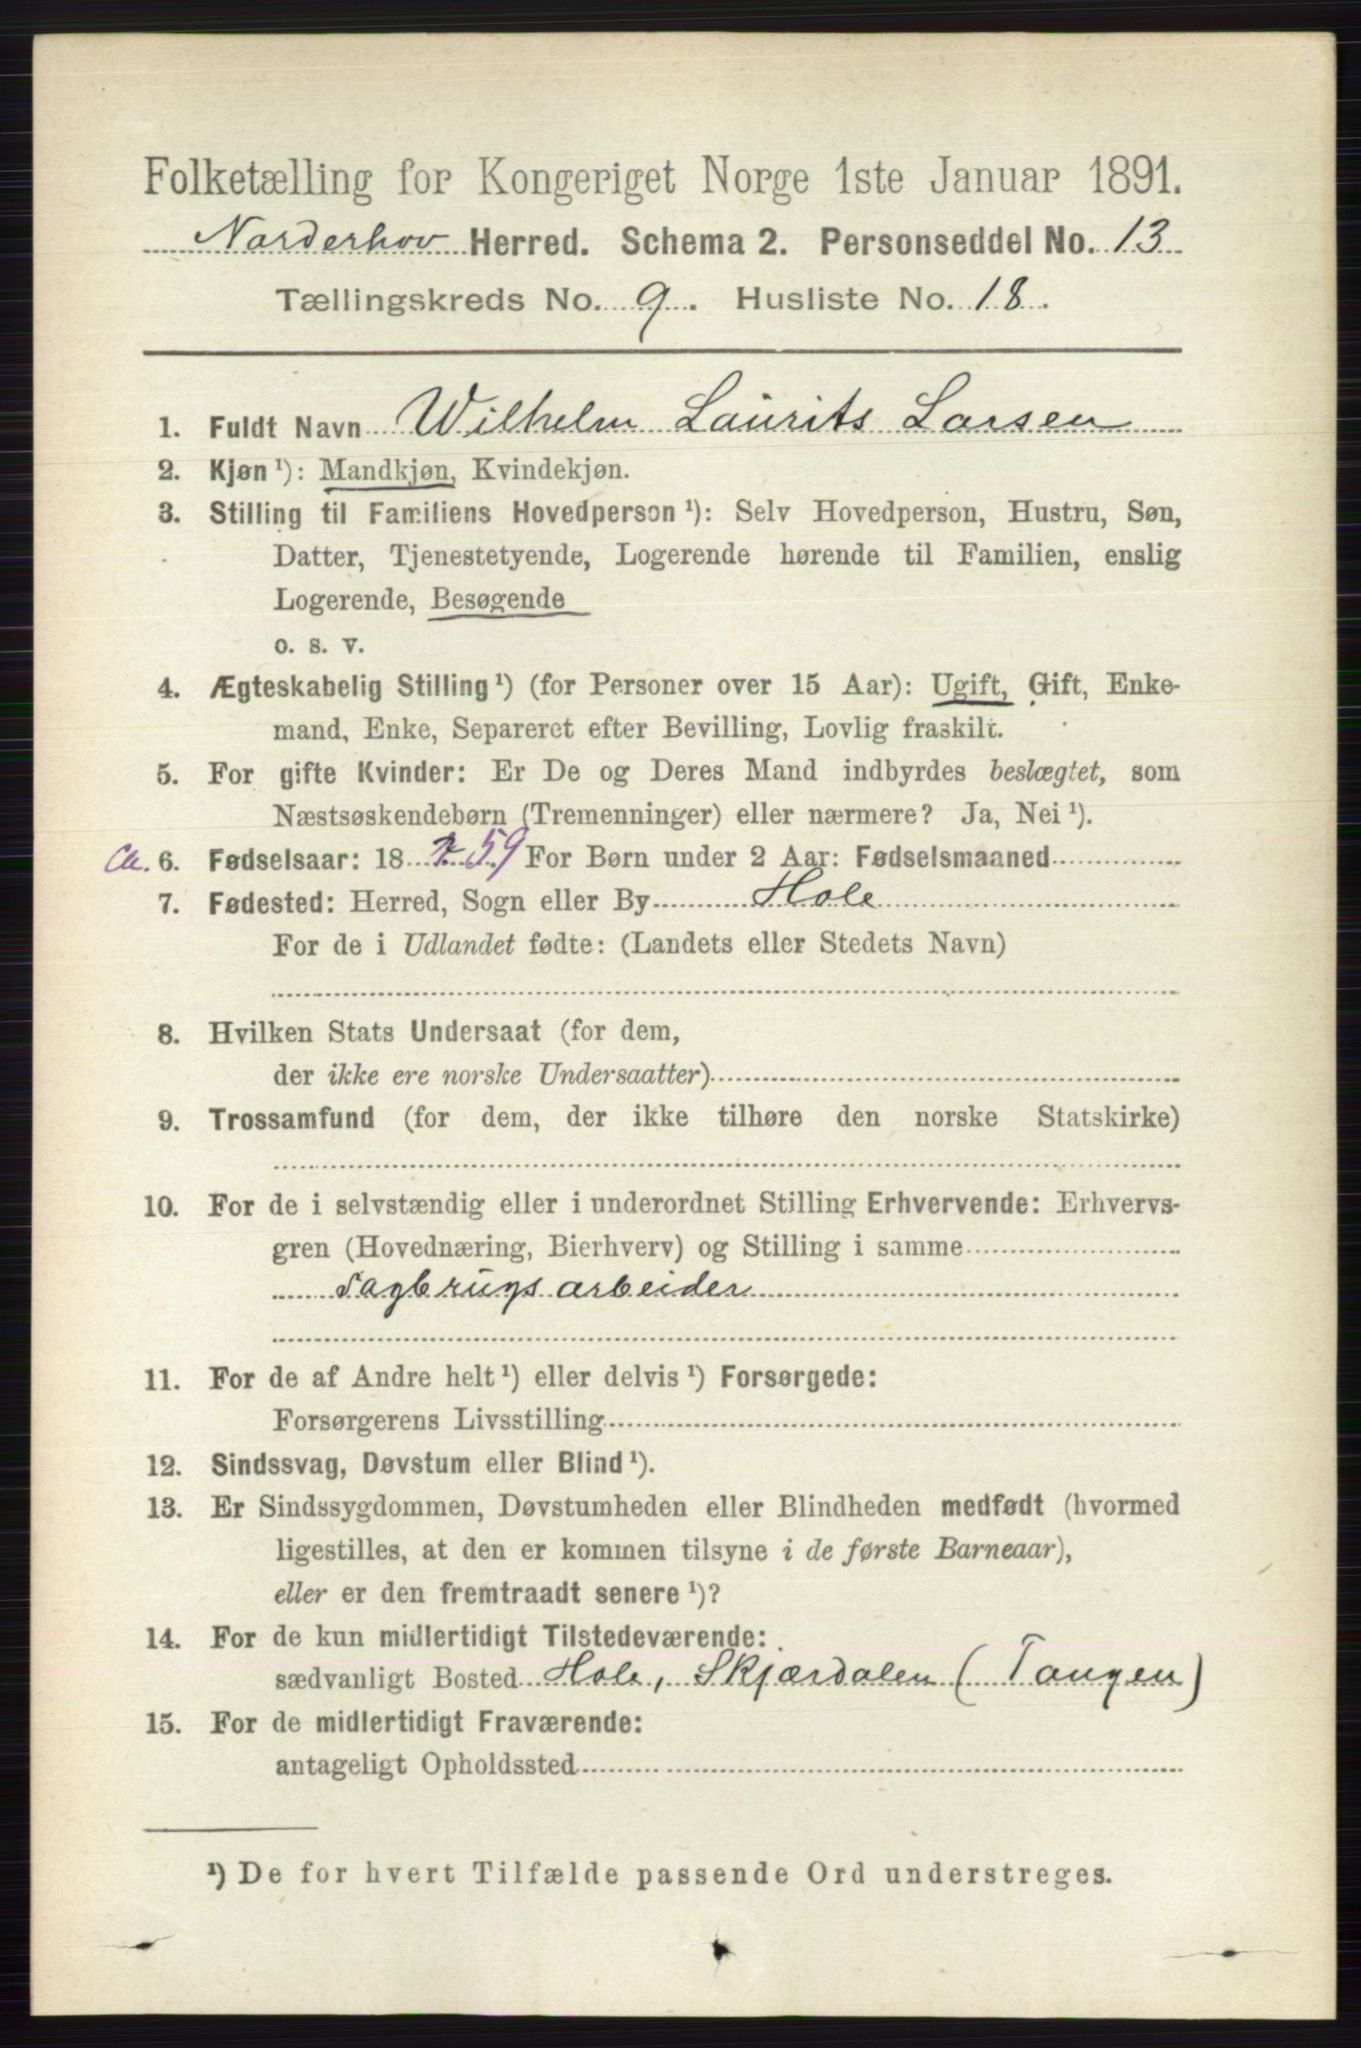 Folketælling for Kongeriget Norge 1ste Januar 1891.
Norderhov Herred. Schema 2. Personseddel No. 13
Tællingskreds No. 9. Husliste No. 18.
1. Fuldt Navn Wilhelm Laurits Larsen
2. Kjøn ¹): Mandkjøn, Kvindekjøn.
3. Stilling til Familiens Hovedperson ¹): Selv Hovedperson, Hustru, Søn,
Datter, Tjenestetyende, Logerende hørende til Familien, enslig
Logerende, Besøgende
o. s. v.
4. Ægteskabelig Stilling ¹) (for Personer over 15 Aar): Ugift, Gift, Enke-
mand, Enke, Separeret efter Bevilling, Lovlig fraskilt.
5. For gifte Kvinder: Er De og Deres Mand indbyrdes beslægtet, som
Næstsøskendebørn (Tremenninger) eller nærmere? Ja, Nei ¹).
Ca. 6. Fødselsaar: 18 59 For Børn under 2 Aar: Fødselsmaaned
7. Fødested: Herred, Sogn eller By Hole
For de i Udlandet fødte: (Landets eller Stedets Navn)
8. Hvilken Stats Undersaat (for dem,
der ikke ere norske Undersaatter)
9. Trossamfund (for dem, der ikke tilhøre den norske Statskirke)
10. For de i selvstændig eller i underordnet Stilling Erhvervende: Erhvervs-
gren (Hovednæring, Bierhverv) og Stilling i samme
Sagbrugsarbeider
11. For de af Andre helt ¹) eller delvis ¹) Forsørgede:
Forsørgerens Livsstilling
12. Sindssvag, Døvstum eller Blind ¹).
13. Er Sindssygdommen, Døvstumheden eller Blindheden medfødt (hvormed
ligestilles, at den er kommen tilsyne i de første Barneaar),
eller er den fremtraadt senere ¹)?
14. For de kun midlertidigt Tilstedeværende:
sædvanligt Bosted Hole, Skjærdalen (Tangen)
15. For de midlertidigt Fraværende:
antageligt Opholdssted
¹) De for hvert Tilfælde passende Ord understreges.